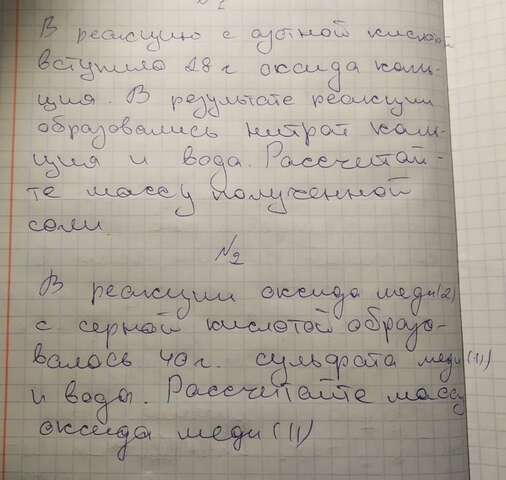 В реакцию с азотной кислотой
вступило 28 г оксида каль-
ция. В результате реакции
образовались нитрат каль-
ция и вода. Рассчитай-
те массу полученной
соли
№2
В реакции оксида меди(2)
с серной кислотой образо-
валось 40 г. сульфата меди(II)
и воды. Рассчитайте массу
оксида меди(II)